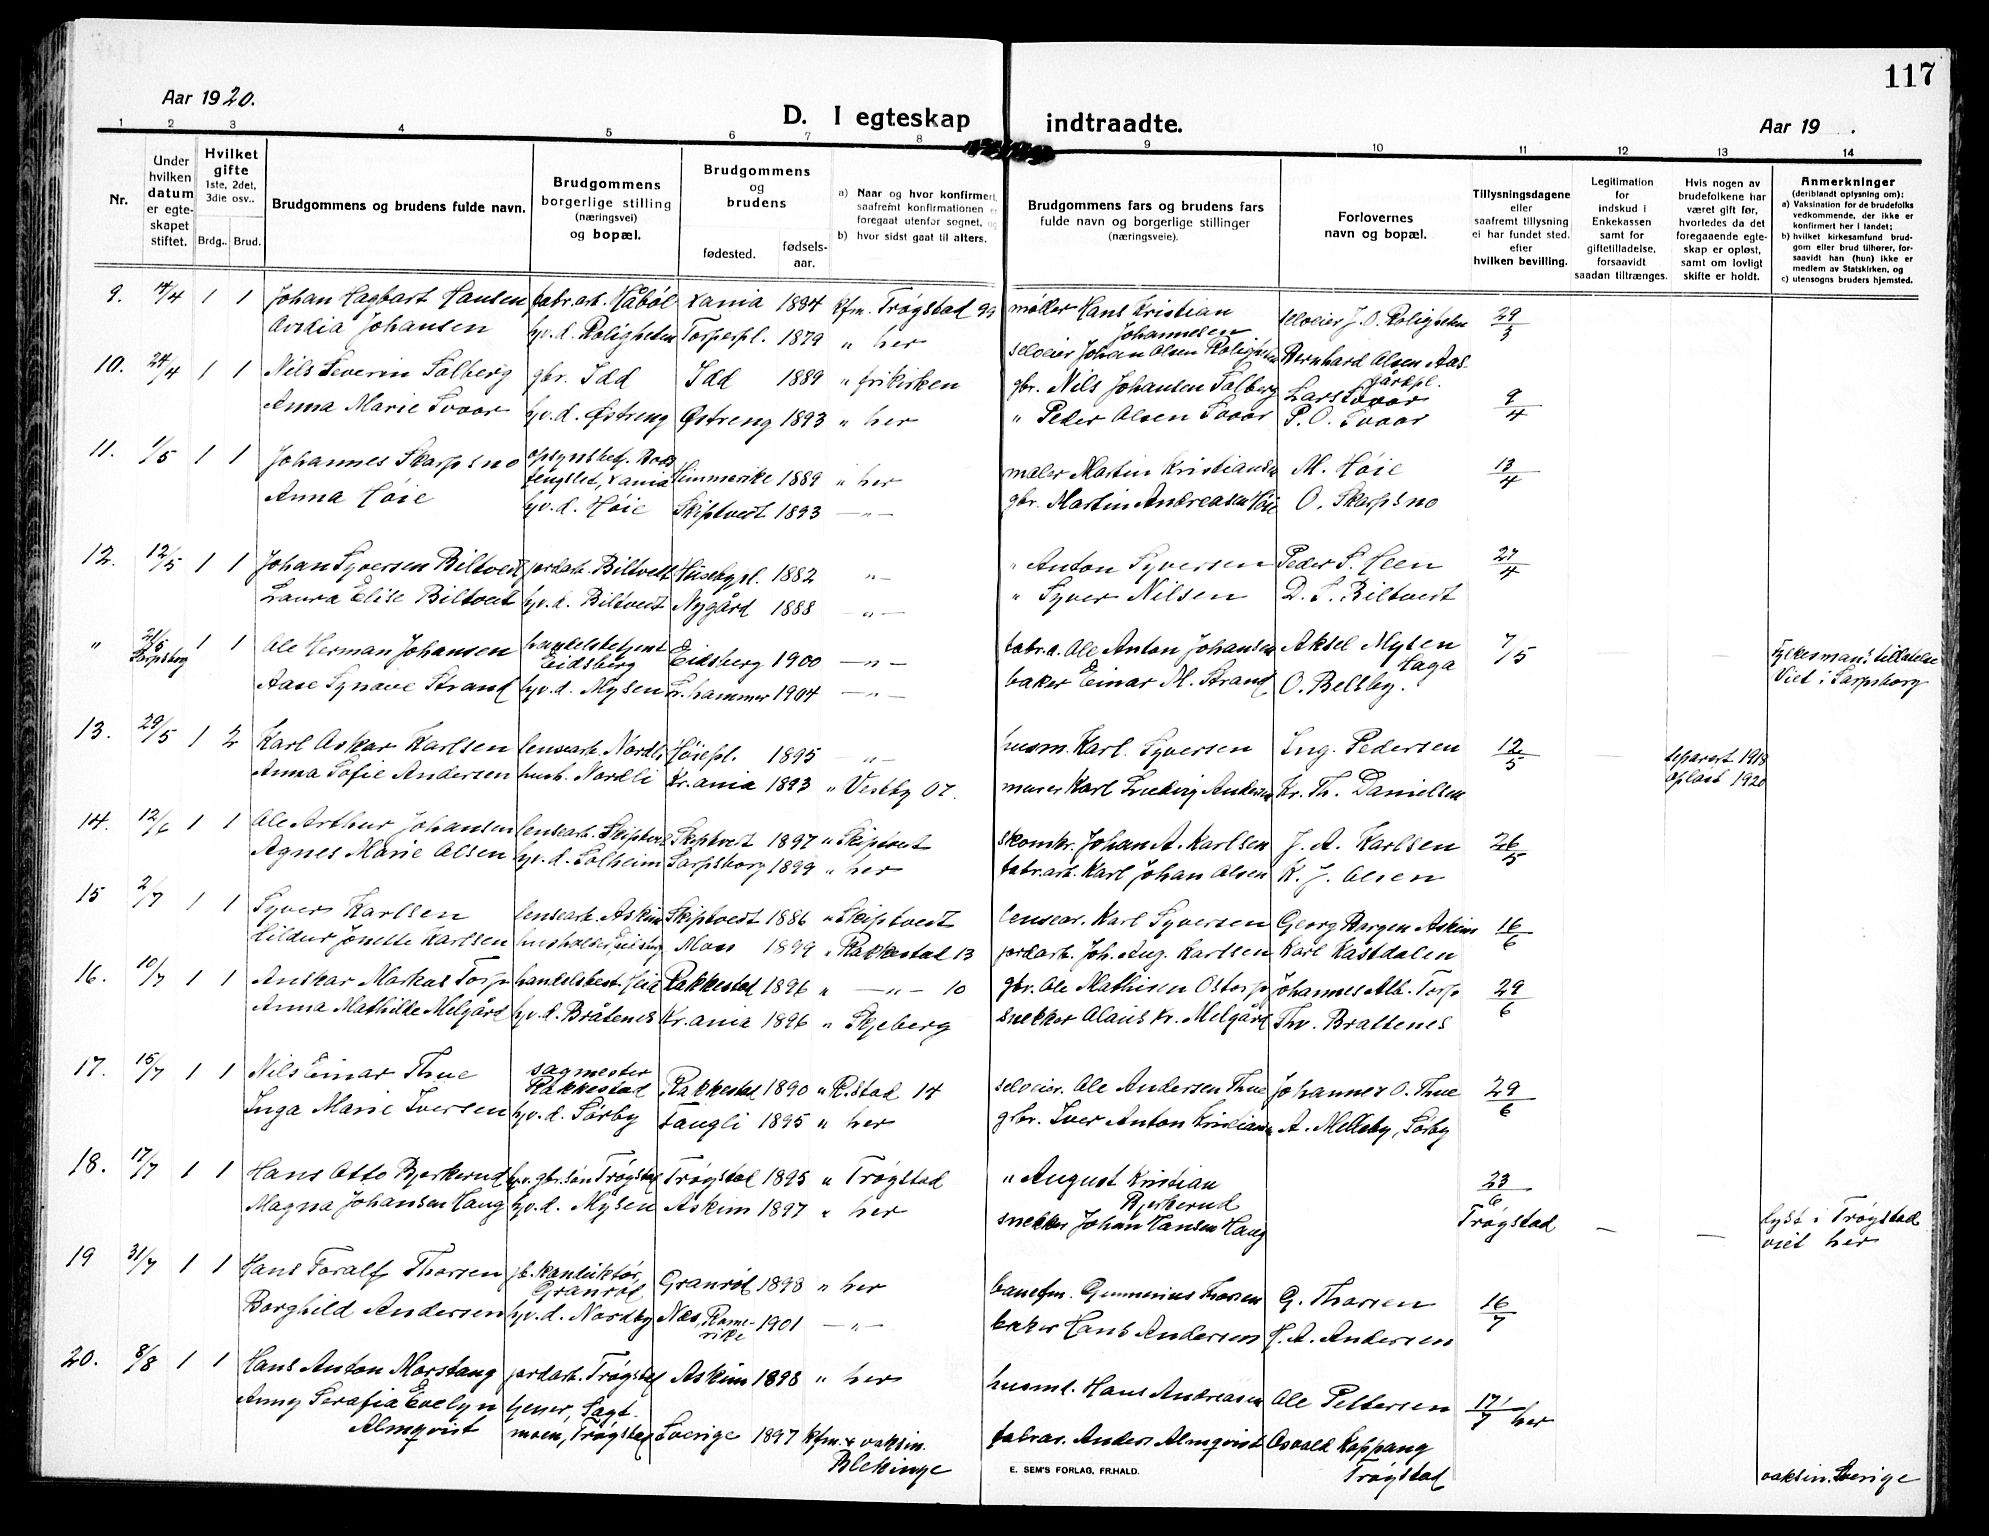 117
Aar 1920.
D. I egteskap indtraadte.
Aar 19 .
1 2 3 4 5 6 7 8 9 10 11 12 13 14
Nr.
Under hvilken datum er egteskapet stiftet.
Hvilket gifte 1ste, 2det, 3die osv..
Brdg.. Brud.
Brudgommens og brudens fulde navn.
Brudgommens borgerlige stilling (næringsvei) og bopæl.
Brudgommens og brudens
fødested. fødselsaar.
a) Naar og hvor konfirmert, saafremt konfirmationen er foregaat utenfor sognet, og
b) hvor sidst gaat til alters.
Brudgommens fars og brudens fars fulde navn og borgerlige stillinger (næringsveie).
Forlovernes navn og bopæl.
Tillysningsdagene eller saafremt tillysning ei har fundet sted. efter hvilken bevilling.
Legitimation for indskud i Enkekassen samt for giftetilladelse, forsaavidt saadan tiltrænges.
Hvis nogen av brudefolkene har været gift før, hvorledes da det foregaaende egteskap er opløst, samt om lovligt skifte er holdt.
Anmerkninger (deriblandt oplysning om):
a) Vaksination for de brudefolks vedkommende, der ikke er konfirmert her i landet;
b) hvilket kirkesamfund brudgom eller brud tilhører, forsaavidt han (hun) ikke er medlem av Statskirken, og
c) utensogns bruders hjemsted.
9. 4/4 1 1 Johan Hagbart Hansen fabr.arb. Haabøl X.ania 1894 kfm. Trøgstad 99 møller Hans Kristian Johannesen selveier J. O. Roligheten 29/3
Johansen hv.d. Roligheten Torperpl. 1879 " her selveier Johan Olsen Roligheten Bernhard Olsen Aasgårdpl.
10. 24/4 1 1 Nils Severin Solberg gbr. Idd Idd 1889 " frikirken gbr. Nils Johansen Solberg Lars Svoor 9/4
Anna Marie Svoor hv.d. Østreng Østreng 1893 " her " Peder Olsen Svoor P. O. Svoor
11. 1/5 1 1 Johannes Skarpsno opsynsbet. Bodsfengslet, X.ania Hemmerike 1889 " her maler Martin Kristiansen M. Høie 13/4
Anna Høie hv.d. Høie Skiptvedt 1893 — " — gbr. Martin Andreasen Høie O. Skarpsno
12. 12/5 1 1 Johan Syversen Biltvedt jordarb. Biltvedt Husebypl. 1882 — " — " Anton Syversen Peder S. Heen 27/4
Laura Elise Biltvedt hv.d. Biltvedt Nygård 1888 — " — " Syver Nilsen D. S. Biltvedt
" 21/5 Sarpsborg 1 1 Ole Herman Johansen handelsbetjent Eidsberg Eidsberg 1900 — " — fabr.a. Ole Anton Johansen Aksel Mysen Haga 7/5 Fylkesman's tillatelse
Aase Synøve Strand hv.d. Mysen Lr.hammer 1904 — " — baker Einar M. Strand O. Belsby. Viet i Sarpsborg
13. 29/5 1 2 Karl Oskar Karlsen lensearb. Nordli Høiepl. 1895 — " — husm. Karl Syversen Ing. Pedersen 12/5 — separert 1918
Anna Sofie Andersen hush. Nordli Kr.ania 1893 " Vestby 07. murer Karl Ludvig Andersen Kr. Th. Danielsen opløst 1920
14. 12/6 1 1 Ole Arthur Johansen lensearb. Skiptvedt Skiptvedt 1897 " Skiptvedt skomkr. Johan A. Karlsen J. A. Karlsen 26/5
Agnes Marie Olsen hv.d. Solheim Sarpsborg 1899 " her fabr.arb. Karl Johan Olsen K. J. Olsen
15 2/7 1 1 Syver Karlsen lensearb. Askim Skiptvedt 1886 " Skiptvedt lensear. Karl Syversen Georg Borgen Askim 16/6
Hildur Jonette Karlsen husholder, Eidsberg Mon 1899 " Rakkestad 13 jordarb. Joh. Aug. Karlsen Karl Kastdalen
16. 10/7 1 1 Anskar Markus Torp handelsbest. Heia Rakkestad 1896 " — " — 10 gbr. Ole Mathisen Ostorp Johannes Alb. Torp 29/6
Anna Mathilde Melgård hv.d. Bråtenes Kr.ania 1896 " Skjeberg snekker Olaus Kr. Melgård Thv. Brattenes
17. 15/7 1 1 Nils Einar Thue sagmester Rakkestad Rakkestad 1890 " R.stad 14 selveier. Ole Andersen Thue Johannes O. Thue 29/6
Inga Marie Iversen hv.d. Sørby Fangli 1895 " her gbr. Iver Anton Kristiansen A. Melleby, Sørby
18. 17/7 1 1 Hans Otto Bjerkerud hv. gbr.søn Trøgstad Trøgstad 1895 " Trøgstad " August Kristian Bjerkerud 23/6 Trøgstad — — lyst i Trøgstad
Magna Johansen Haug hv.d. Mysen Askim 1897 " her snekker Johan Hansen Haug viet her
19 31/7 1 1 Hans Toralf Thorsen jb. konduktør, Granrød Granrød 1898 " her banefm. Gunnerius Thorsen G. Thorsen 16/7
Borghild Andersen hv.d. Nordby Næs, Romerike 1901 — " — baker Hans Andersen H. A. Andersen
20. 8/8 1 1 Hans Anton Morstang jordarb. Trøgstad Askim 1898 " her husm. Hans Andreasen Ole Pettersen 17/7 her
Anny Serafia Evelyn Almqvist tjener, Sagtmoen, Trøgstad Sverige 1897 kfm. & vaksin. Blekinge fabrar. Anders Almqvist Osvald Koppang Trøgstad vaksin. Sverige
E. SEM'S FORLAG, FR.HALD.